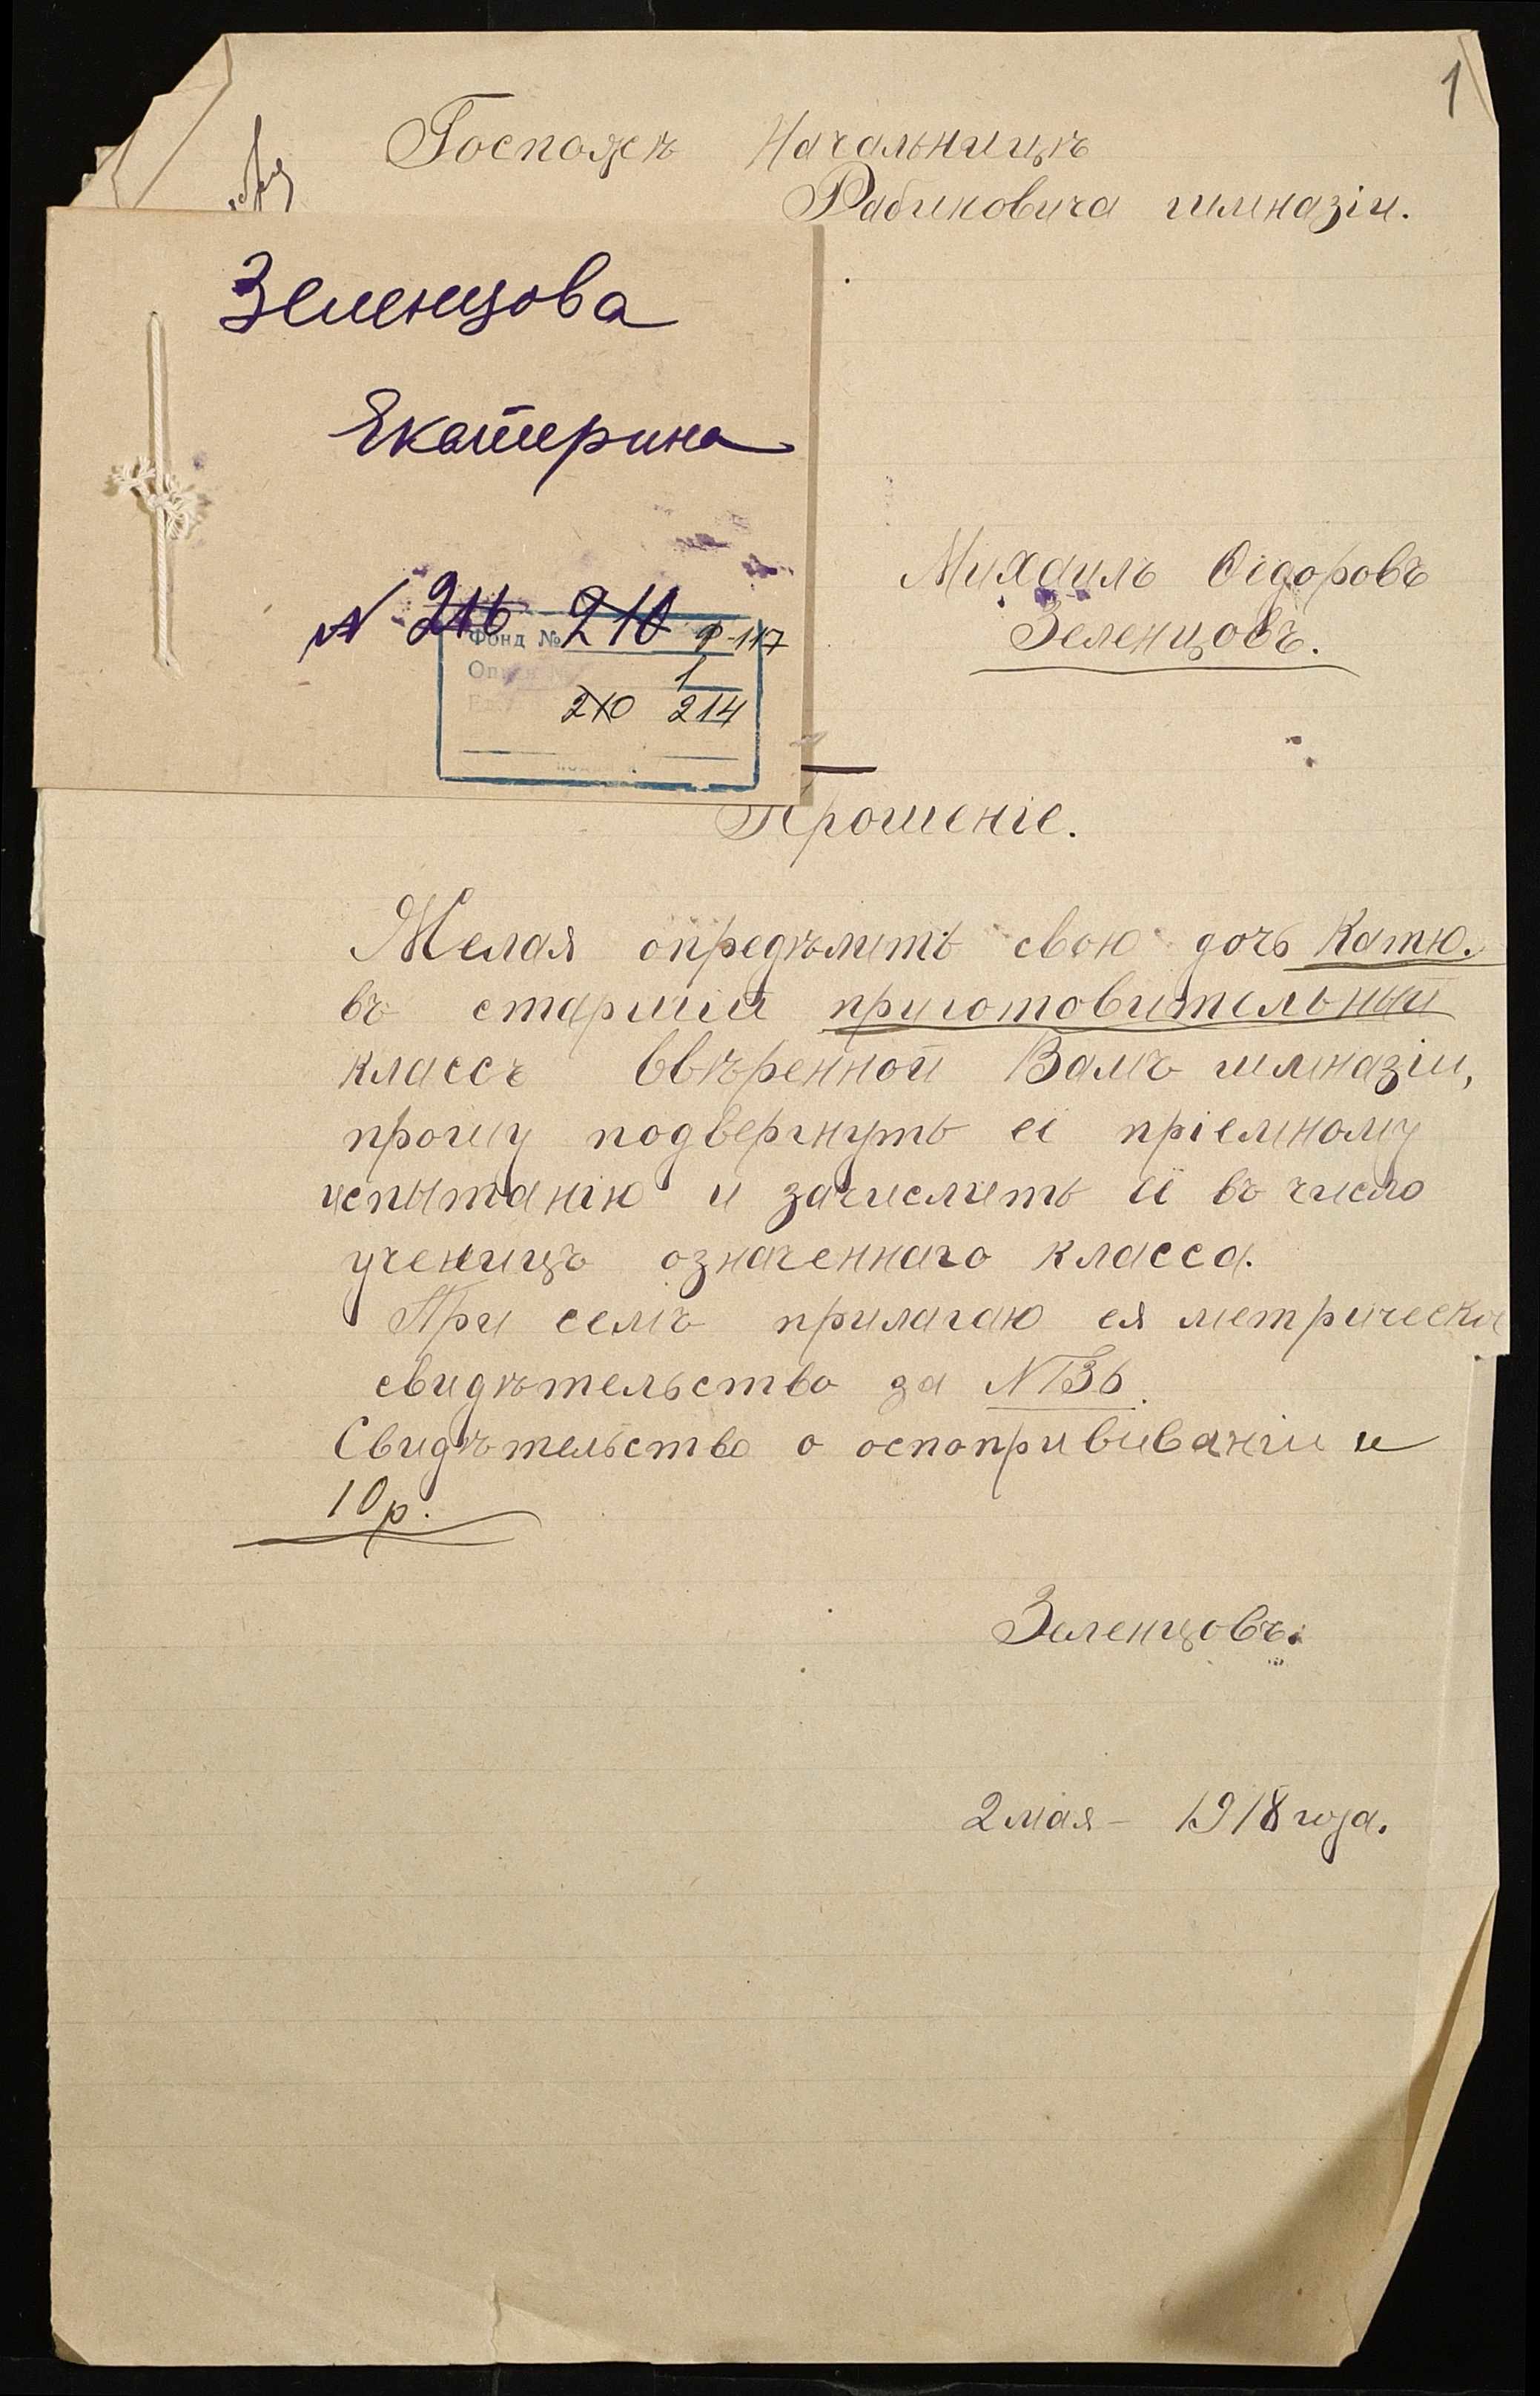 1
Госпожѣ Начальницѣ
Рабиковича гимназіи.
Зеленцова
Екатерина
N 216 210
Фонд № Ф-117
1
210 214
Михаилъ Ѳедоровъ
Зеленцовъ.
Прошеніе.
Желая опредѣлить свою дочь Катю.
въ старшій приготовительный
классъ ввѣренной Вамъ гимназіи,
прошу подвергнуть её пріемному
испытанію и зачислить её въ число
ученицъ означеннаго класса.
При семъ прилагаю ея метрическое
свидѣтельство за №136.
Свидѣтельство о оспопрививаніи и
10р.
Зеленцовъ.
2 мая – 1918 года.